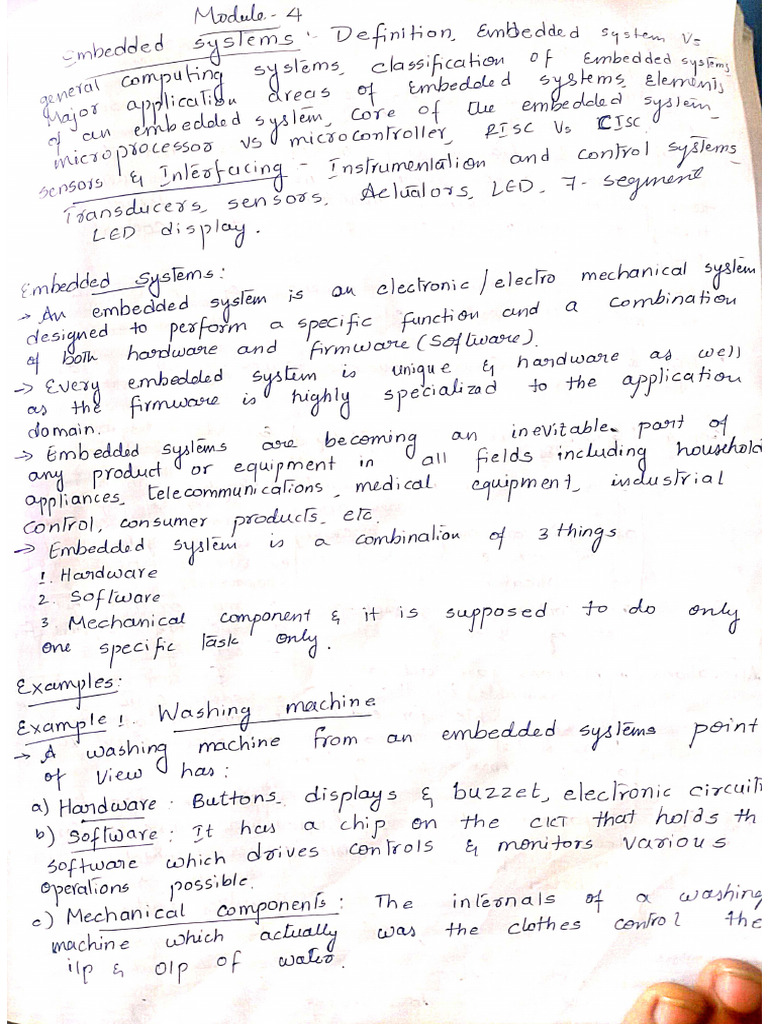 Module - 4
Embedded systems :- Definition, Embedded system Vs
general computing systems, classification of Embedded systems,
Major application areas of Embedded systems, Elements
of an embedded system, Core of the embedded system,
microprocessor vs microcontroller, RISC Vs CISC.
sensors & Interfacing - Instrumentation and control systems,
Transducers, sensors, Actuators, LED, 7-segment
LED display.
Embedded Systems :
→ An embedded system is an electronic/electro mechanical system
designed to perform a specific function and a combination
of both hardware and firmware (software).
→ Every embedded system is unique & hardware as well
as the firmware is highly specialized to the application
domain.
→ Embedded systems are becoming an inevitable part of
any product or equipment in all fields including household
appliances, telecommunications, medical equipment, industrial
control, consumer products, etc.
→ Embedded system is a combination of 3 things
1. Hardware
2. Software
3. Mechanical component & it is supposed to do only
one specific task only.
Examples:
Example 1. Washing machine
→ A washing machine from an embedded systems point
of view has :
a) Hardware : Buttons, displays & buzzet, electronic circuit
b) Software : It has a chip on the CKT that holds th
software which drives controls & monitors various
operations possible.
c) Mechanical components : The internals of a washing
machine which actually was the clothes control the
i/p & o/p of water.